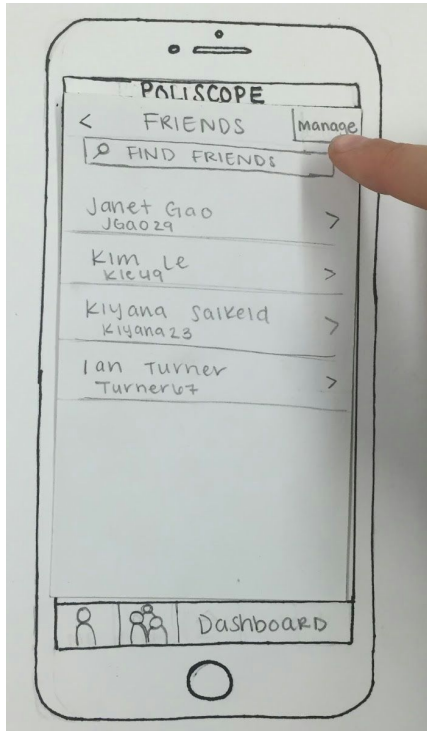 POLISCOPE
< FRIENDS Manage
FIND FRIENDS
Janet Gao >
JGAO29
Kim Le >
Kle49
Kiyana Salkeld >
Kiyana23
Ian Turner >
Turner67
DashboARD